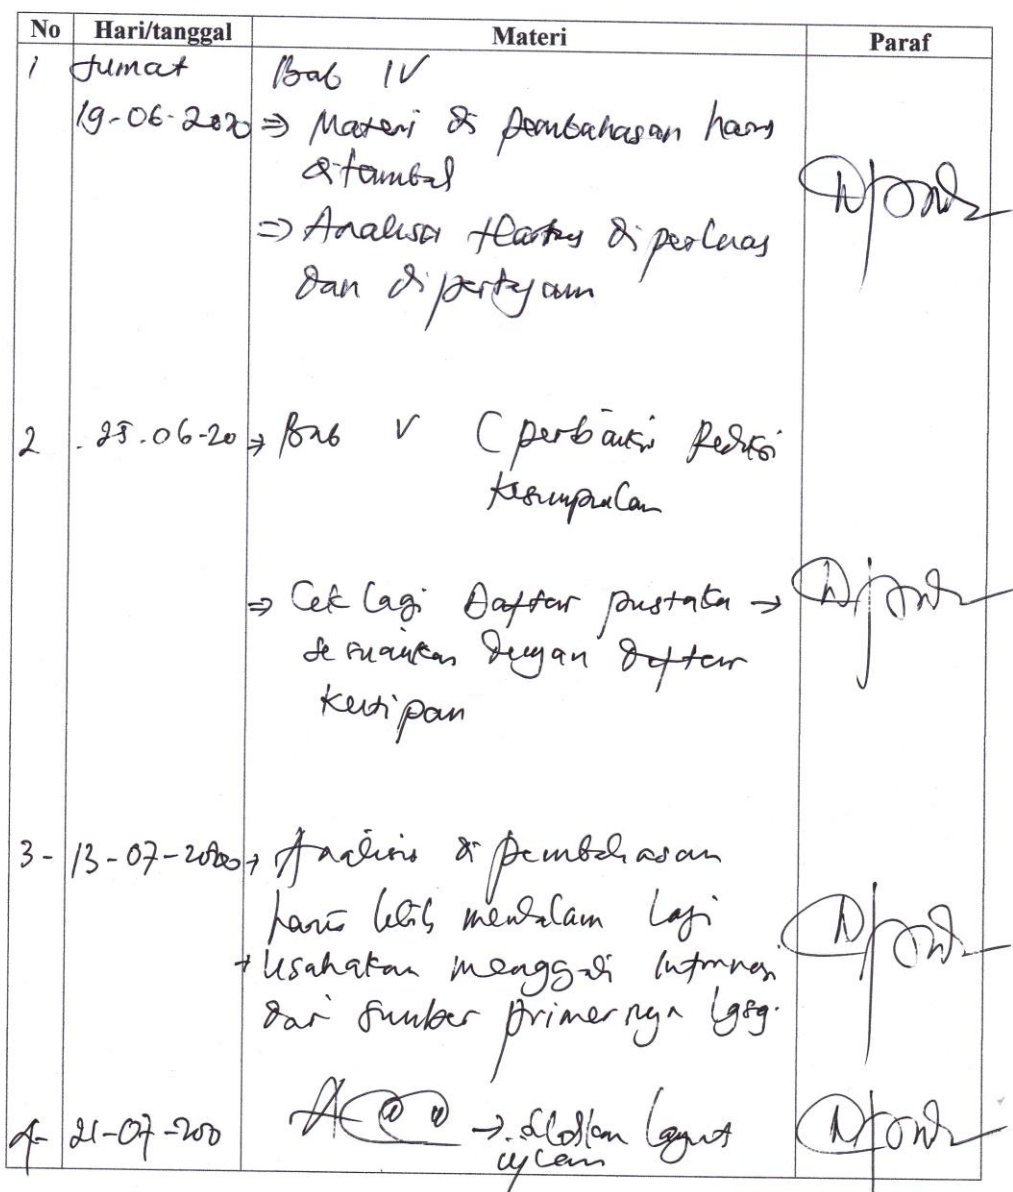 No Hari/tanggal Materi Paraf
1 Jumat Bab IV
19-06-2020 ⇒ Materi di pembahasan harus
ditambah
⇒ Analisis harus diperluas
dan dipertajam
2 . 25.06-20 → Bab V (perbaiki Redaksi
kesimpulan
⇒ Cek lagi Daftar pustaka →
sesuaikan dengan daftar
kutipan
3 - 13-07-2020 → Analisis di pembahasan
harus lebih mendalam lagi
→ Usahakan menggali informasi
dari sumber primernya lgsg.
4- 21-07-200 ACC → silahkan lanjut
ujian